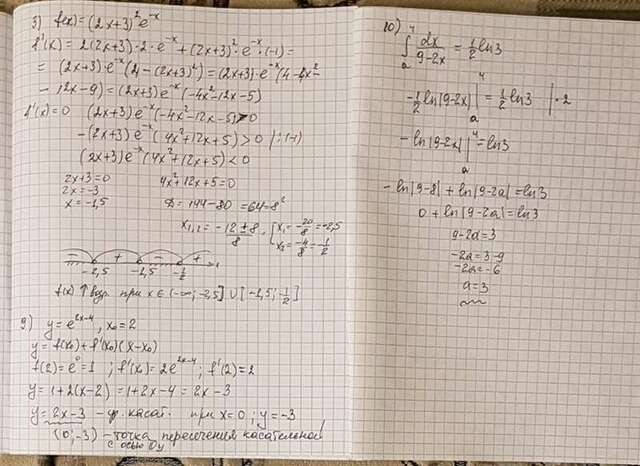 3) f(x) = (2x+3)² e⁻ˣ
f'(x) = 2(2x+3)·2·e⁻ˣ + (2x+3)²·e⁻ˣ·(-1) =
= (2x+3)·e⁻ˣ(4-(2x+3)²) = (2x+3)·e⁻ˣ(4-4x²-
- 12x-9) = (2x+3)e⁻ˣ(-4x²-12x-5)
f'(x) = 0 (2x+3)e⁻ˣ(-4x²-12x-5) > 0
-(2x+3)e⁻ˣ(4x²+12x+5) > 0 |:(-1)
(2x+3)e⁻ˣ(4x²+12x+5) < 0
2x+3=0 4x²+12x+5=0
2x=-3 D = 144-80 = 64 = 8²
x=-1,5
x₁,₂ = (-12 ± 8)/8 ; x₁ = -20/8 = -2,5
x₂ = -4/8 = -1/2
- + - +
-2,5 -1,5 -1/2
f(x) ↑ возр. при x ∈ (-∞; -2,5] ∪ [-1,5; -1/2]
9) y = e²ˣ⁻⁴, x₀ = 2
y = f(x₀) + f'(x₀)(x-x₀)
f(2) = e⁰ = 1 ; f'(x₀) = 2e²ˣ⁻⁴ ; f'(2) = 2
y = 1+2(x-2) = 1+2x-4 = 2x-3
y = 2x-3 - ур. касат. при x=0 ; y=-3
(0;-3) - точка пересечения касательной
с осью Oy
10)
∫ₐ⁴ dx/(9-2x) = 1/2 ln3
-1/2 ln|9-2x| |ₐ⁴ = 1/2 ln3 | · 2
-ln|9-2x| |ₐ⁴ = ln3
-ln|9-8| + ln|9-2a| = ln3
0 + ln|9-2a| = ln3
9-2a=3
-2a=3-9
-2a=-6
a=3